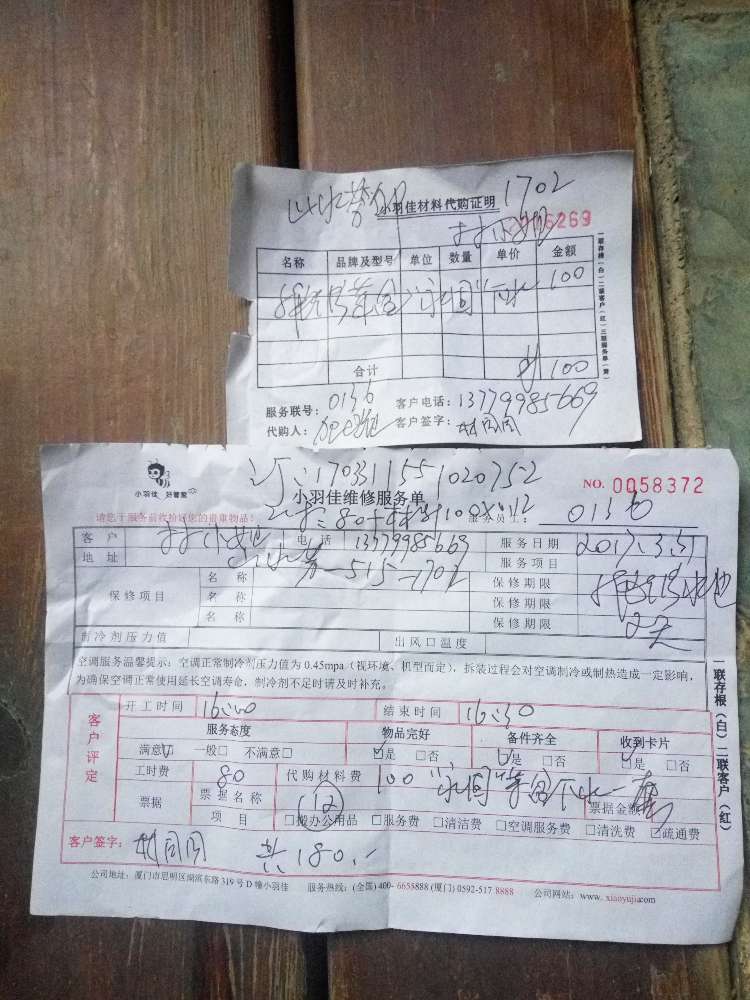 山水芳 1702
小羽佳材料代购证明
6269
林小姐
名称 品牌及型号 单位 数量 单价 金额
菜盆"永固"下水 100
合计 100
服务联号: 0136 客户电话: 13779985669
代购人: 客户签字:
一联存根(白)二联客户(红)三联服务单(黄)
小羽佳 好管家
订:1703311551020752
小羽佳维修服务单 NO. 0058372
工:80+材料100
请您于服务前收拾好您的贵重物品! 服务员工: 0136
客户 林小姐 电话 13779985669 服务日期 2017.3.31
地址 山水芳-515-1702 服务项目
保修项目 名称 保修期限
名称 保修期限
名称 保修期限
制冷剂压力值 出风口温度
空调服务温馨提示:空调正常制冷剂压力值为 0.45mpa(视环境、机型而定),拆装过程会对空调制冷或制热造成一定影响,
为确保空调正常使用延长空调寿命,制冷剂不足时请及时补充。
一联存根(白)二联客户(红)
客户评定
开工时间 16:00 结束时间 16:30
服务态度 物品完好 备件齐全 收到卡片
满意☑ 一般□ 不满意□ ☑是 □否 ☑是 □否 ☑是 □否
工时费 80 代购材料费 100 "永固"菜盆下水一套
票据 票据名称 (12) 票据金额
项目 □搬办公用品 □服务费 □清洁费 □空调服务费 □清洗费 ☑疏通费
客户签字: 共180.-
公司地址:厦门市思明区湖滨东路 319 号 D 幢小羽佳 服务热线:(全国) 400-6655888 (厦门) 0592-517 8888 公司网站:www.xiaoyujia.com